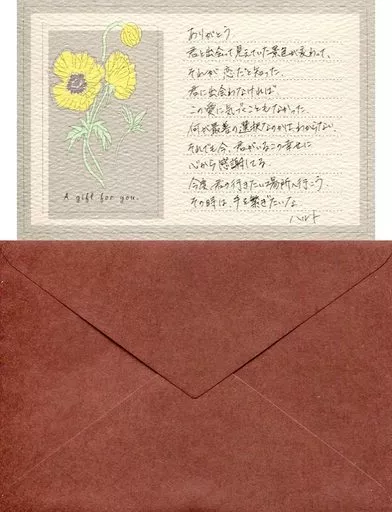 A gift for you.
ありがとう。
君と出会って見えていた景色が変わって、
それが恋だと知った。
君に出会わなければ
この愛に気づくこともなかった。
何が最善の選択なのかはわからない。
それでも今、君がいるこの幸せに
心から感謝してる。
今度、君の行きたい場所へ行こう。
その時は、手を繋ぎたいな。
ハルト